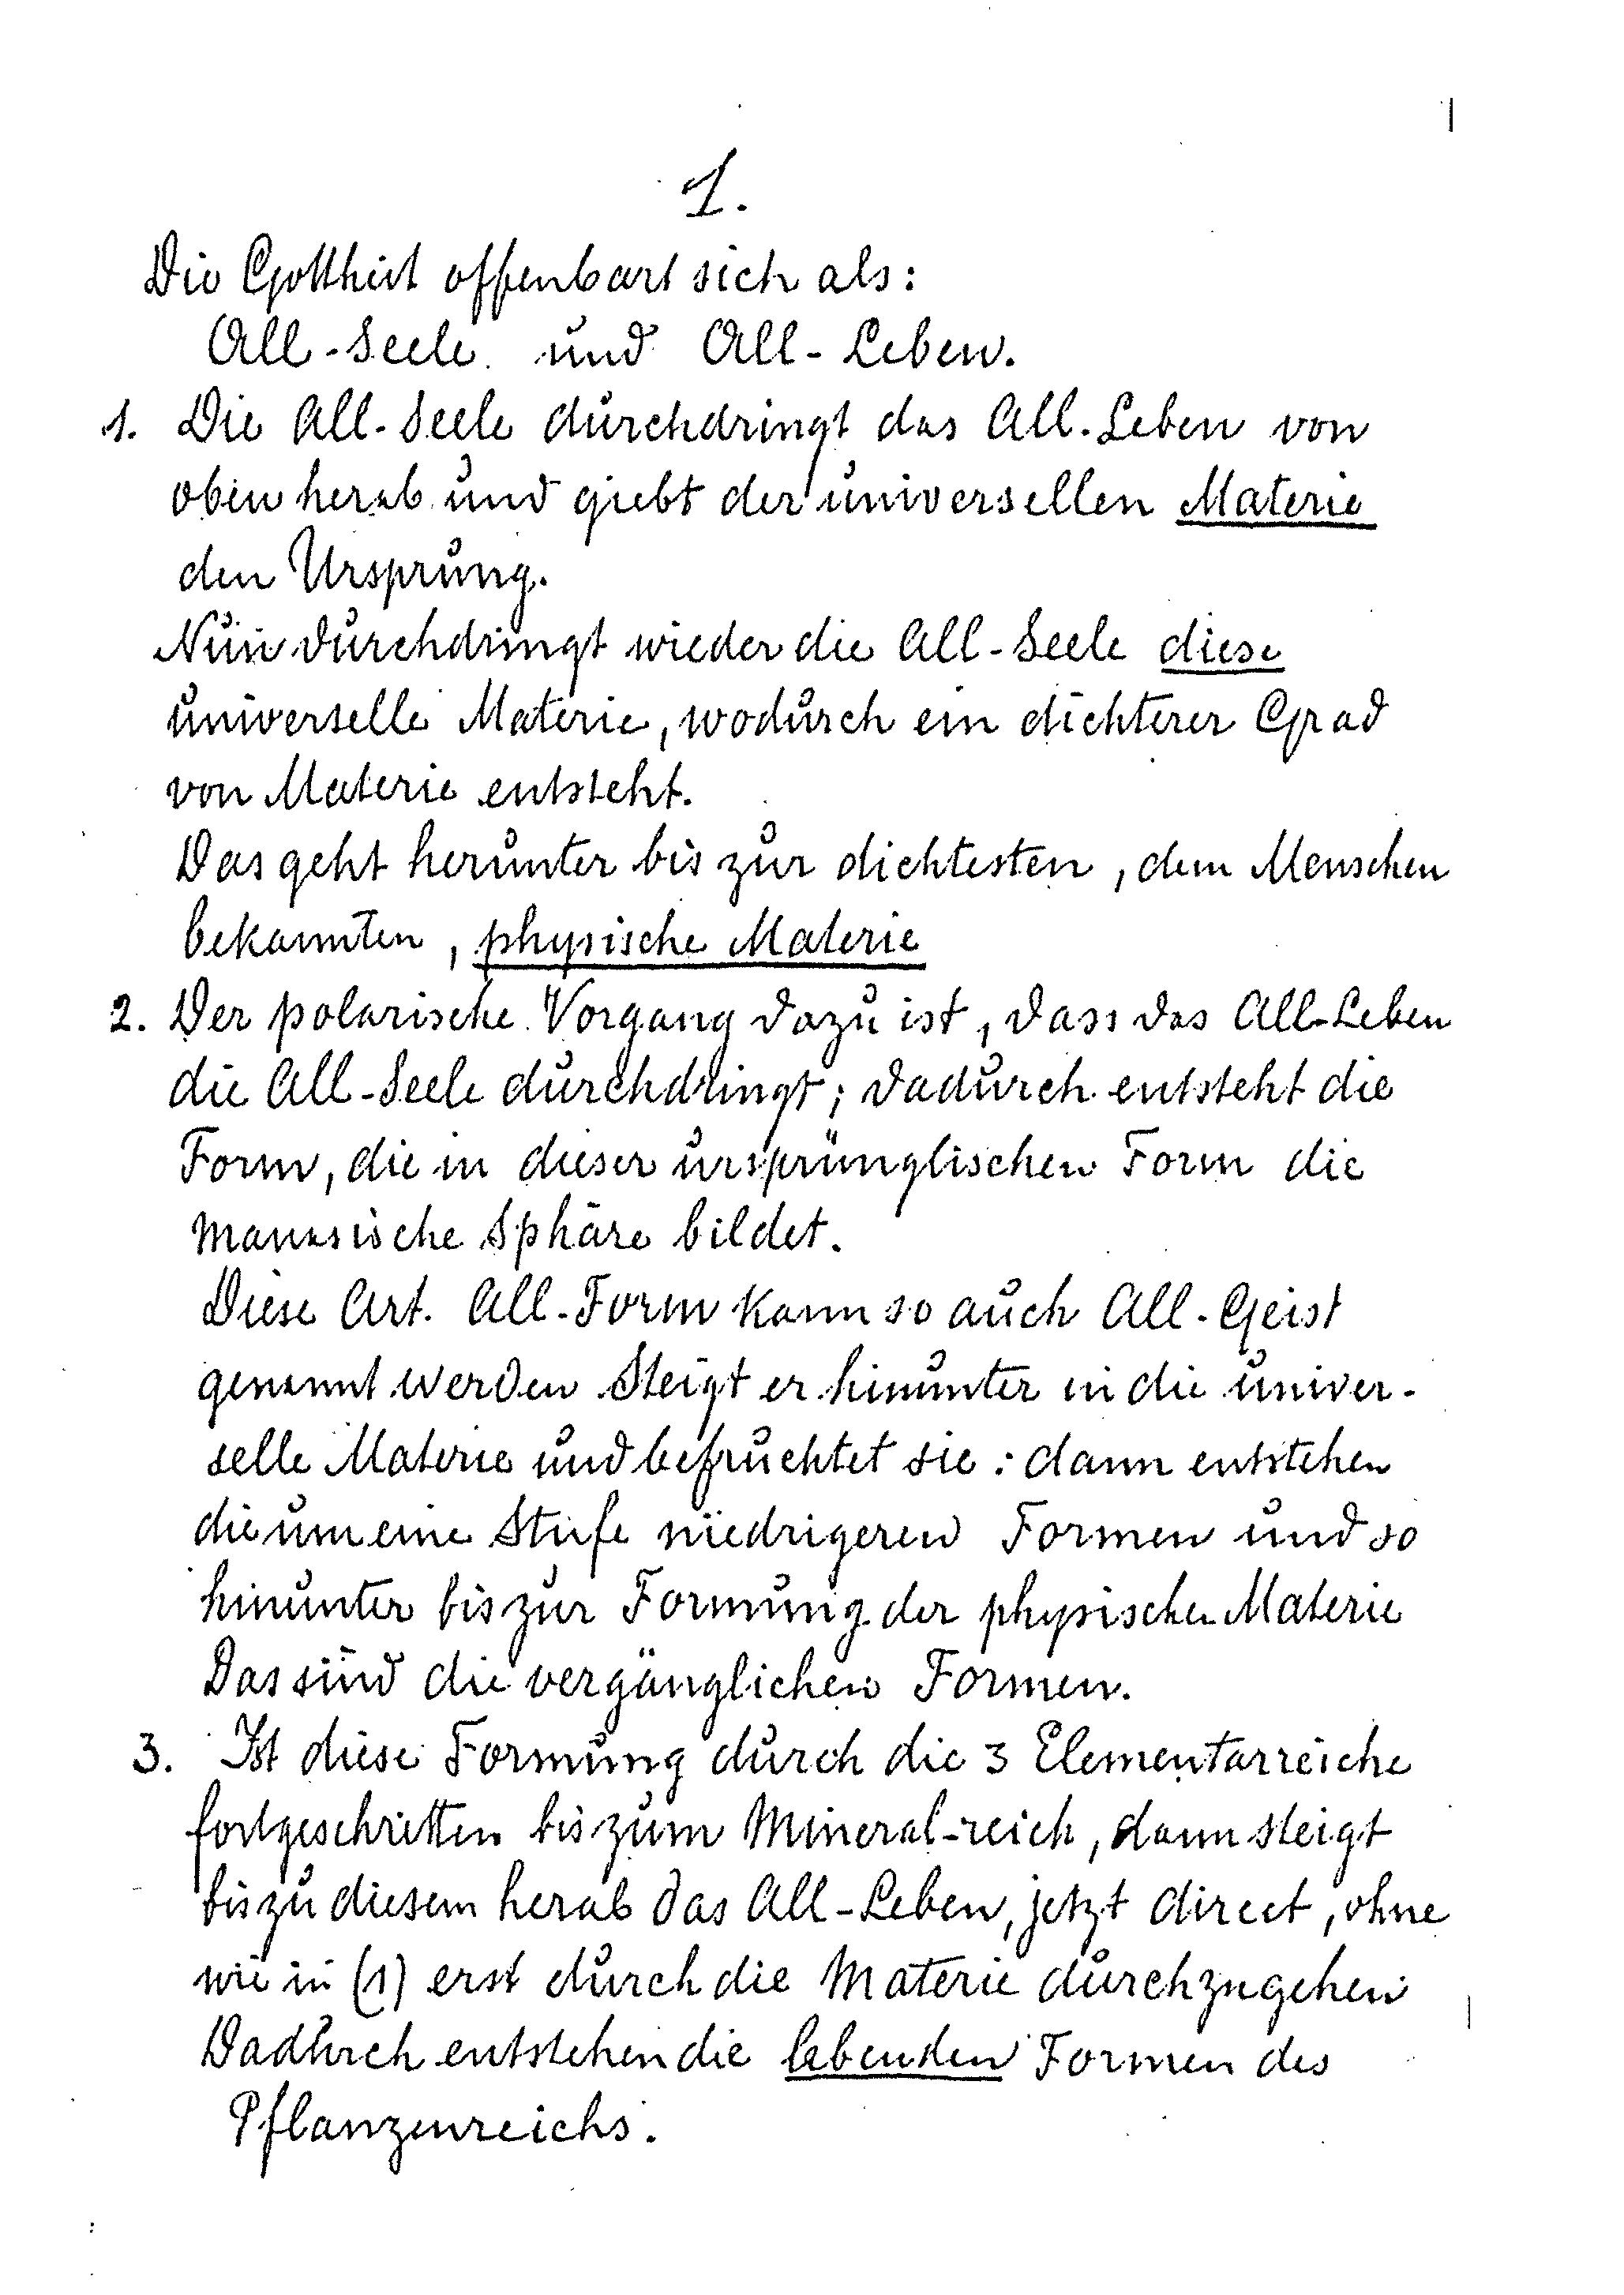 1.
Die Gottheit offenbart sich als:
All-Seele und All-Leben.
1. Die All-Seele durchdringt das All-Leben von
oben herab und giebt der universellen Materie
den Ursprung.
Nun durchdringt wieder die All-Seele diese
universelle Materie, wodurch ein dichterer Grad
von Materie entsteht.
Das geht herunter bis zur dichtesten, dem Menschen
bekannten, physische Materie
2. Der polarische Vorgang dazu ist, dass das All-Leben
die All-Seele durchdringt; dadurch entsteht die
Form, die in dieser ursprünglischen Form die
manasische Sphäre bildet.
Diese Art All-Form kann so auch All-Geist
genannt werden Steigt er hinunter in die univer-
selle Materie und befruchtet sie: dann entstehen
die um eine Stufe niedrigeren Formen und so
hinunter bis zur Formung der physischen Materie
Das sind die vergänglichen Formen.
3. Ist diese Formung durch die 3 Elementarreiche
fortgeschritten bis zum Mineral-reich, dann steigt
bis zu diesem herab das All-Leben, jetzt direct, ohne
wie in (1) erst durch die Materie durchzugehen
Dadurch entstehen die lebenden Formen des
Pflanzenreichs.